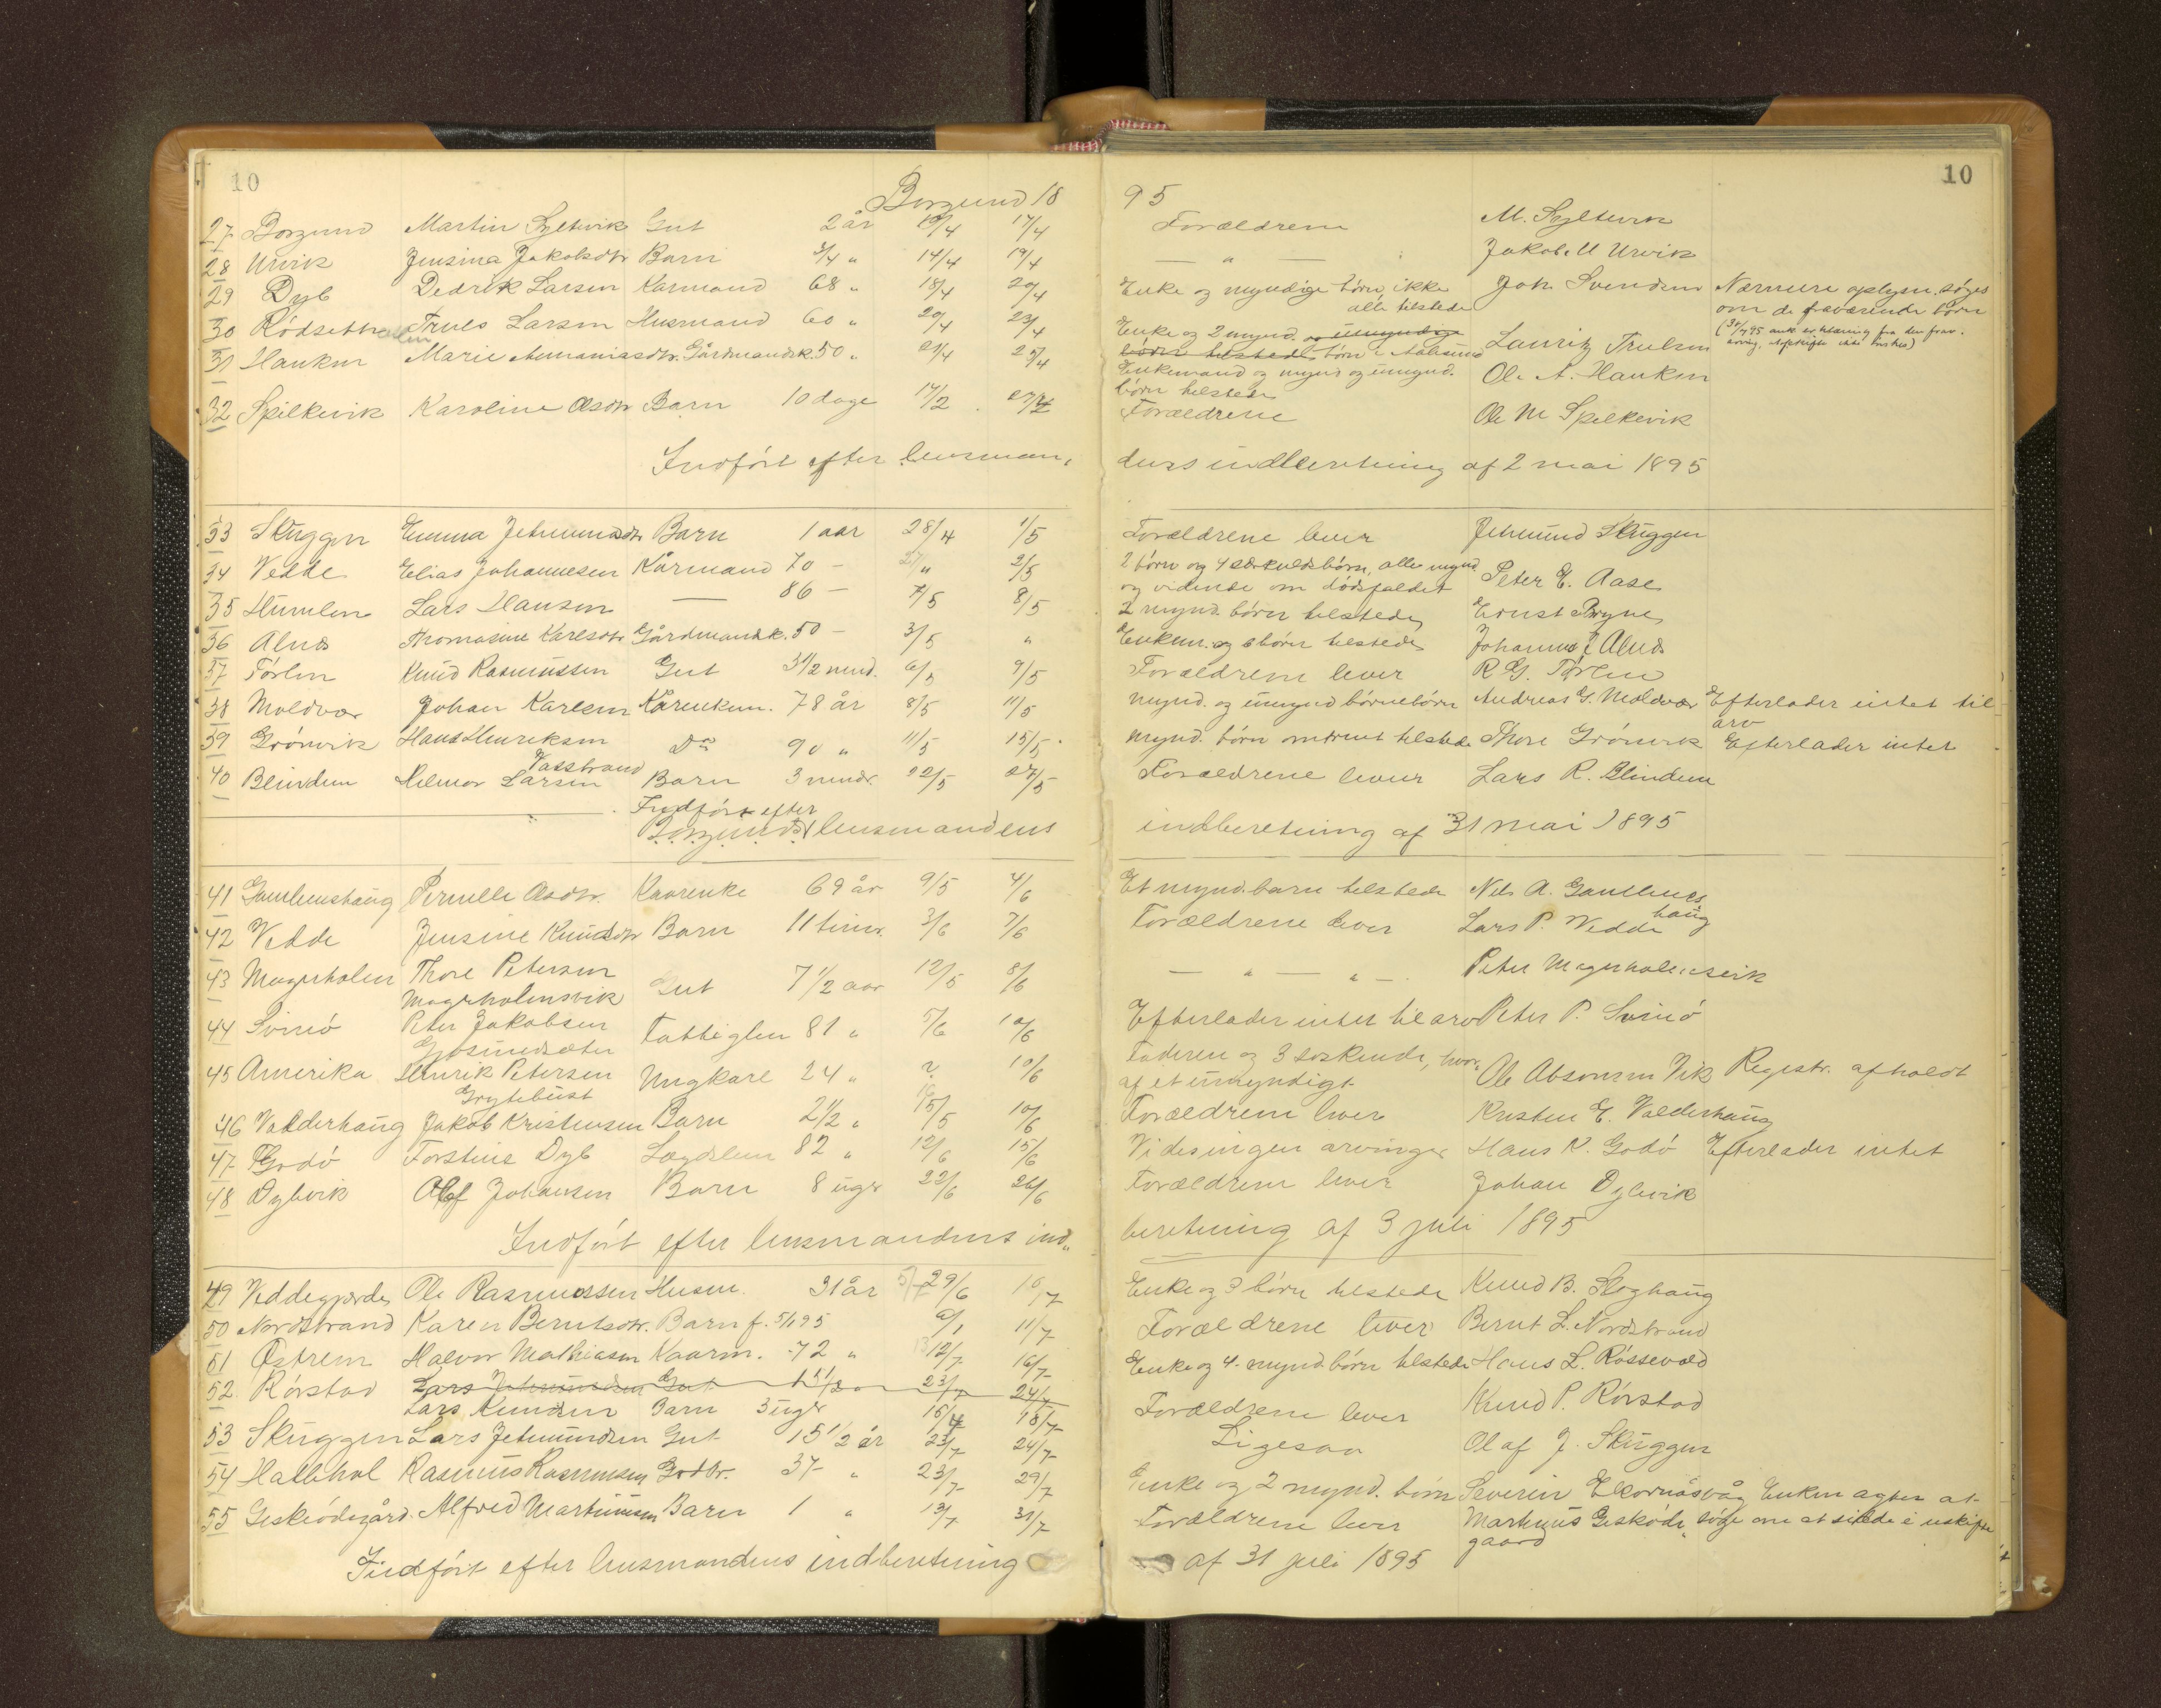 10
Borgund 18
27 Borgund Martin Syltevik Gut 2 år 13/4 17/4
28 Urvik Jensina Jakobsdtr Barn 3/4 " 14/4 19/4
29 Dyb Dedrek Larsen Kårmand 68 " 18/4 20/4
30 Rödseth Truls Larsen Husmand 60 " 20/4 23/4
31 Hauken Marie Ananiasdtr. Gårdmandsk. 50 " 21/4 25/4
32 Spilkevik Karoline Olsdtr Barn 10 dage 17/2 27/4
Indfört efter lensman,
33 Skuggen Emma Jetmundsdtr Barn 1 aar 28/4 1/5
34 Vedde Elias Johannesen Kårmand 70 - 27/" 2/5
35 Humlen Lars Hansen — 86 - 7/5 8/5
36 Alnes Thomasine Karlsdtr Gårdmandsk. 50 - 3/5 "
37 Törlen Knud Rasmussen Gut 3 1/2 mnd. 6/5 9/5
38 Moldvær Johan Karlsen Kårenkem. 78 år 8/5 11/5
39 Grönvik Hans Henriksen Do 90 " 11/5 15/5
Vasstrand
40 Blindem Helmer Larsen Barn 3 mndr. 22/5 27/5
Indført efter
Borgunds lensmandens
41 Gamlemshaug Pernille Olsdtr. Kaarenke 69 år 9/5 4/6
42 Vedde Jensine Knudsdtr Barn 11 timr. 3/6 7/6
43 Magerholm Thore Petersen
Magerholmsvik Gut 7 1/2 aar 12/5 8/6
44 Svinö Peter Jakobsen
Gjosundsæter Fattiglem 81 " 5/6 10/6
45 Amerika Henrik Petersen
Grytebust Ungkarl 24 " ? 10/6
46 Valderhaug Jakob Kristensen Barn 2 1/2 " 15/5 10/6
47 Godö Torstine Dyb Lægdslem 82 " 12/6 15/6
48 Dybvik Olaf Johansen Barn 8 uger 22/6 26/6
Indfört efter lensmandens ind„
49 Veddegjerde Ole Rasmussen Husm. 31 år 29/6 10/7
50 Nordstrand Karen Berntsdtr. Barn f. 5/1 95 9/1 11/7
51 Østrem Halvor Mathiasen Kaarm. 72 " 12/7 16/7
52 Rörstad Lars Jetmundsen Gut 15 1/2 " 23/7 24/7
Lars Knudsen Barn 3 uger 15/7 18/7
53 Skuggen Lars Jetmundsen Gut 15 1/2 år 23/7 24/7
54 Hatlehol Rasmus Rasmussen Grdbr. 37 " 23/7 29/7
55 Geskrödegård Alfred Martinusen Barn 1 " 13/7 31/7
Indfört efter lensmandens indberetning
10
95
Forældrene M. Syltevik
— " — Jakob. U Urvik
Enke og myndige børn, ikke Joh. Svendsen Nærmere oplysn. søges
alle tilstede om de fraværende børn
Enke og 2 mynd. og umyndige Lauritz Trulsen
børn tilstede børn i Aalesund
Enkemand og mynd og umynd. Ole A. Hauken
børn tilstede
Forældrene Ole M Spilkevik
dens indberetning af 2 mai 1895
Forældrene lever Jetmund Skuggen
2 børn og 4 særkuldsbörn, alle mynd
og vidende om dödsfaldet Peter E. Aase
2 mynd. börn tilstede Ernst Bryne
Enkem. og börn tilstede Johannes P Alnes
Forældrene lever R G. Törlen
mynd. og umynd börnebörn Andreas G. Moldvær Efterlader intet til
arv
mynd. börn omtrent tilstede Thore Grönvik Efterlader intet
Forældrene lever Lars R. Blindem
indberetning af 31 mai 1895
Et mynd. barn tilstede Nils A. Gamlems
haug
Forældrene lever Lars P. Vedde
— " — " — Peter Magerholmsvik
Efterlader intet til arv Peter P. Svinö
Faderen og 3 söskende, hvor„
af et umyndigt Ole Absonsen Vik Registr. afholdt
Forældrene lever Kristen E. Valderhaug
Vides ingen arvinger Hans K. Godö Efterlader intet
Forældrene lever Johan Dybvik
beretning af 3 juli 1895
Enke og 3 börn tilstede Knud B. Sloghaug
Forældrene lever Bernt L. Nordstrand
Enke og 4 mynd börn tilstede Hans L. Rössevold
Forældrene lever Knud P. Rörstad
Ligesaa Olaf J. Skuggen
Enke og 2 mynd. börn Severin Ekornåsvåg Enken agter at
Forældrene lever Martinus Geskøde„ söge om at sidde i uskifte
gaard
af 31 juli 1895